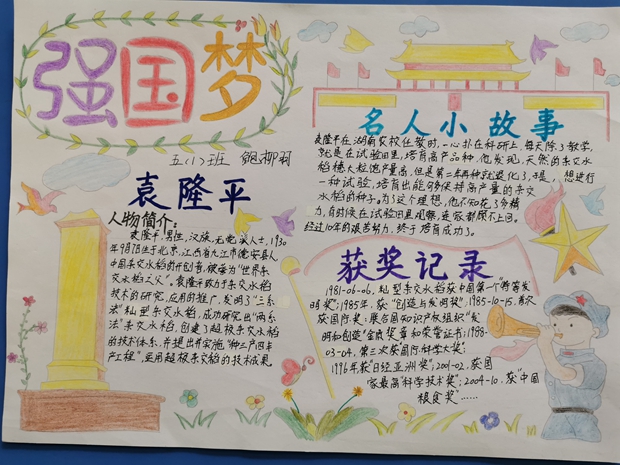 强国梦
五(1)班 鲍柳羽
袁隆平
人物简介:
袁隆平,男性,汉族,无党派人士,1930
年9月7日生于北京,江西省九江市德安县人
中国杂交水稻的开创者,被誉为"世界杂
交水稻之父"。袁隆平致力于杂交水稻
技术的研究,应用的推广,发明了"三系
法"籼型杂交水稻,成功研究出"两系
法"杂交水稻,创建了超级杂交水稻
的技术体系,并提出并实施"种三产四丰
产工程",运用超级杂交稻的技术成果。
名人小故事
袁隆平在湖南农校任教时,一心扑在科研上,每天除了教学,
就是在试验田里,培育高产品种,他发现,天然的杂交水
稻穗大粒饱产量高,但是第二年再种就退化了,于是,想进行
一种试验,培育出能够保持高产量的杂交
水稻的种子。为了这个理想,他不知花了多精
力,有时候在试验田里观察,连家都顾不上回。
经过10年的艰苦努力,终于培育成功了。
获奖记录
1981-06-06,籼型杂交水稻获中国第一个"特等发
明奖";1985年,获"创造与发明奖";1985-10-15,首次
获国际奖:联合国知识产权组织"发
明和创造"金质奖章和荣誉证书;1988-
03-04,第三次获国际科学大奖";
1996年获"日经亚洲奖";2001-02,获国
"家最高科学技术奖";2004-10,获"中国
粮食奖"……